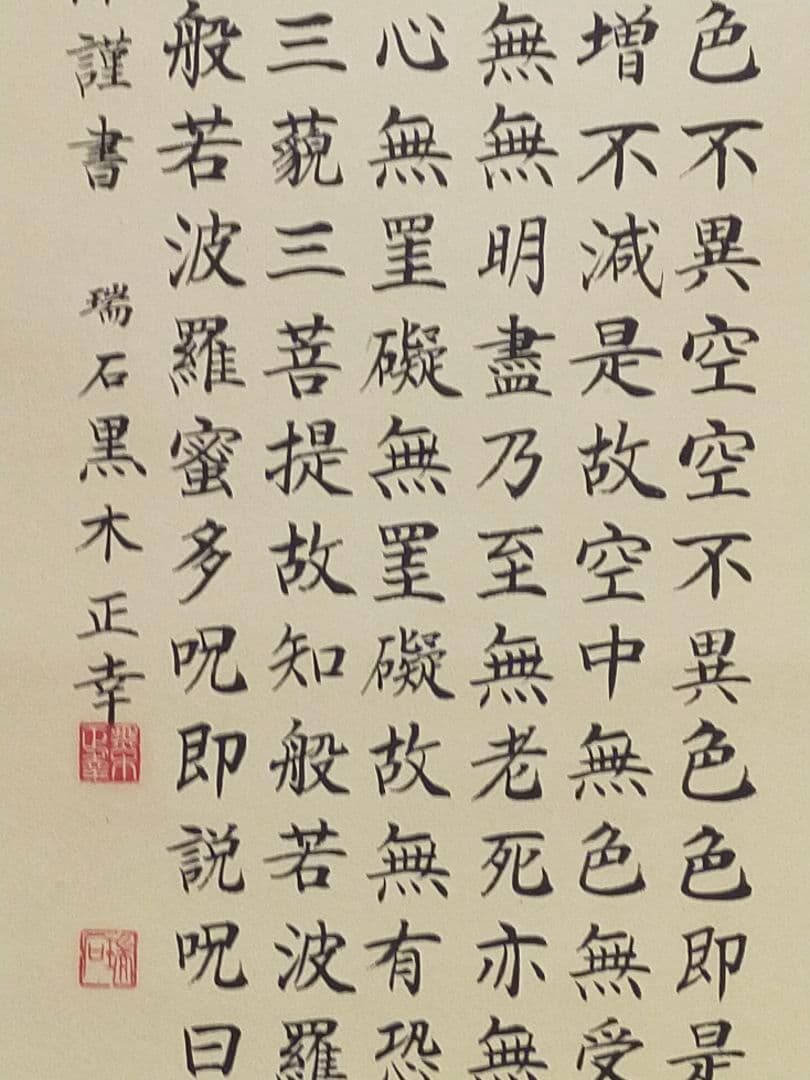 色不異空空不異色色即是
増不減是故空中無色無受
無無明盡乃至無老死亦無
心無罣礙無罣礙故無有恐
三藐三菩提故知般若波羅
般若波羅蜜多呪即説呪曰
謹書 瑞石黒木正幸
黒木正幸
瑞石